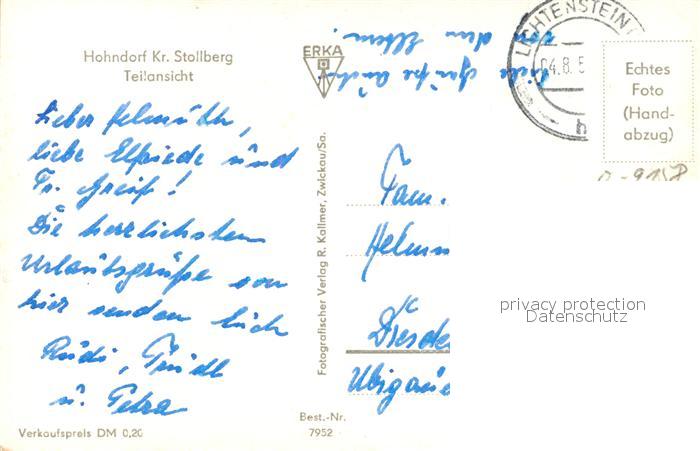 Hohndorf Kr. Stollberg
Teilansicht
Lieber Helmuth,
liebe Elfriede und
Fr. Greif!
Die herzlichsten
Urlaubsgrüße von
hier senden Euch
Rudi, Trudl
u. Petra
Verkaufspreis DM 0,20
ERKA
Fotografischer Verlag R. Kallmer, Zwickau/Sa.
Best.-Nr.
7952
Grüße auch
von den Eltern.
LICHTENSTEIN
04.8.5
b
Echtes
Foto
(Hand-
abzug)
Fam.
Helmu
Dresde
Übigau
privacy protection
Datenschutz